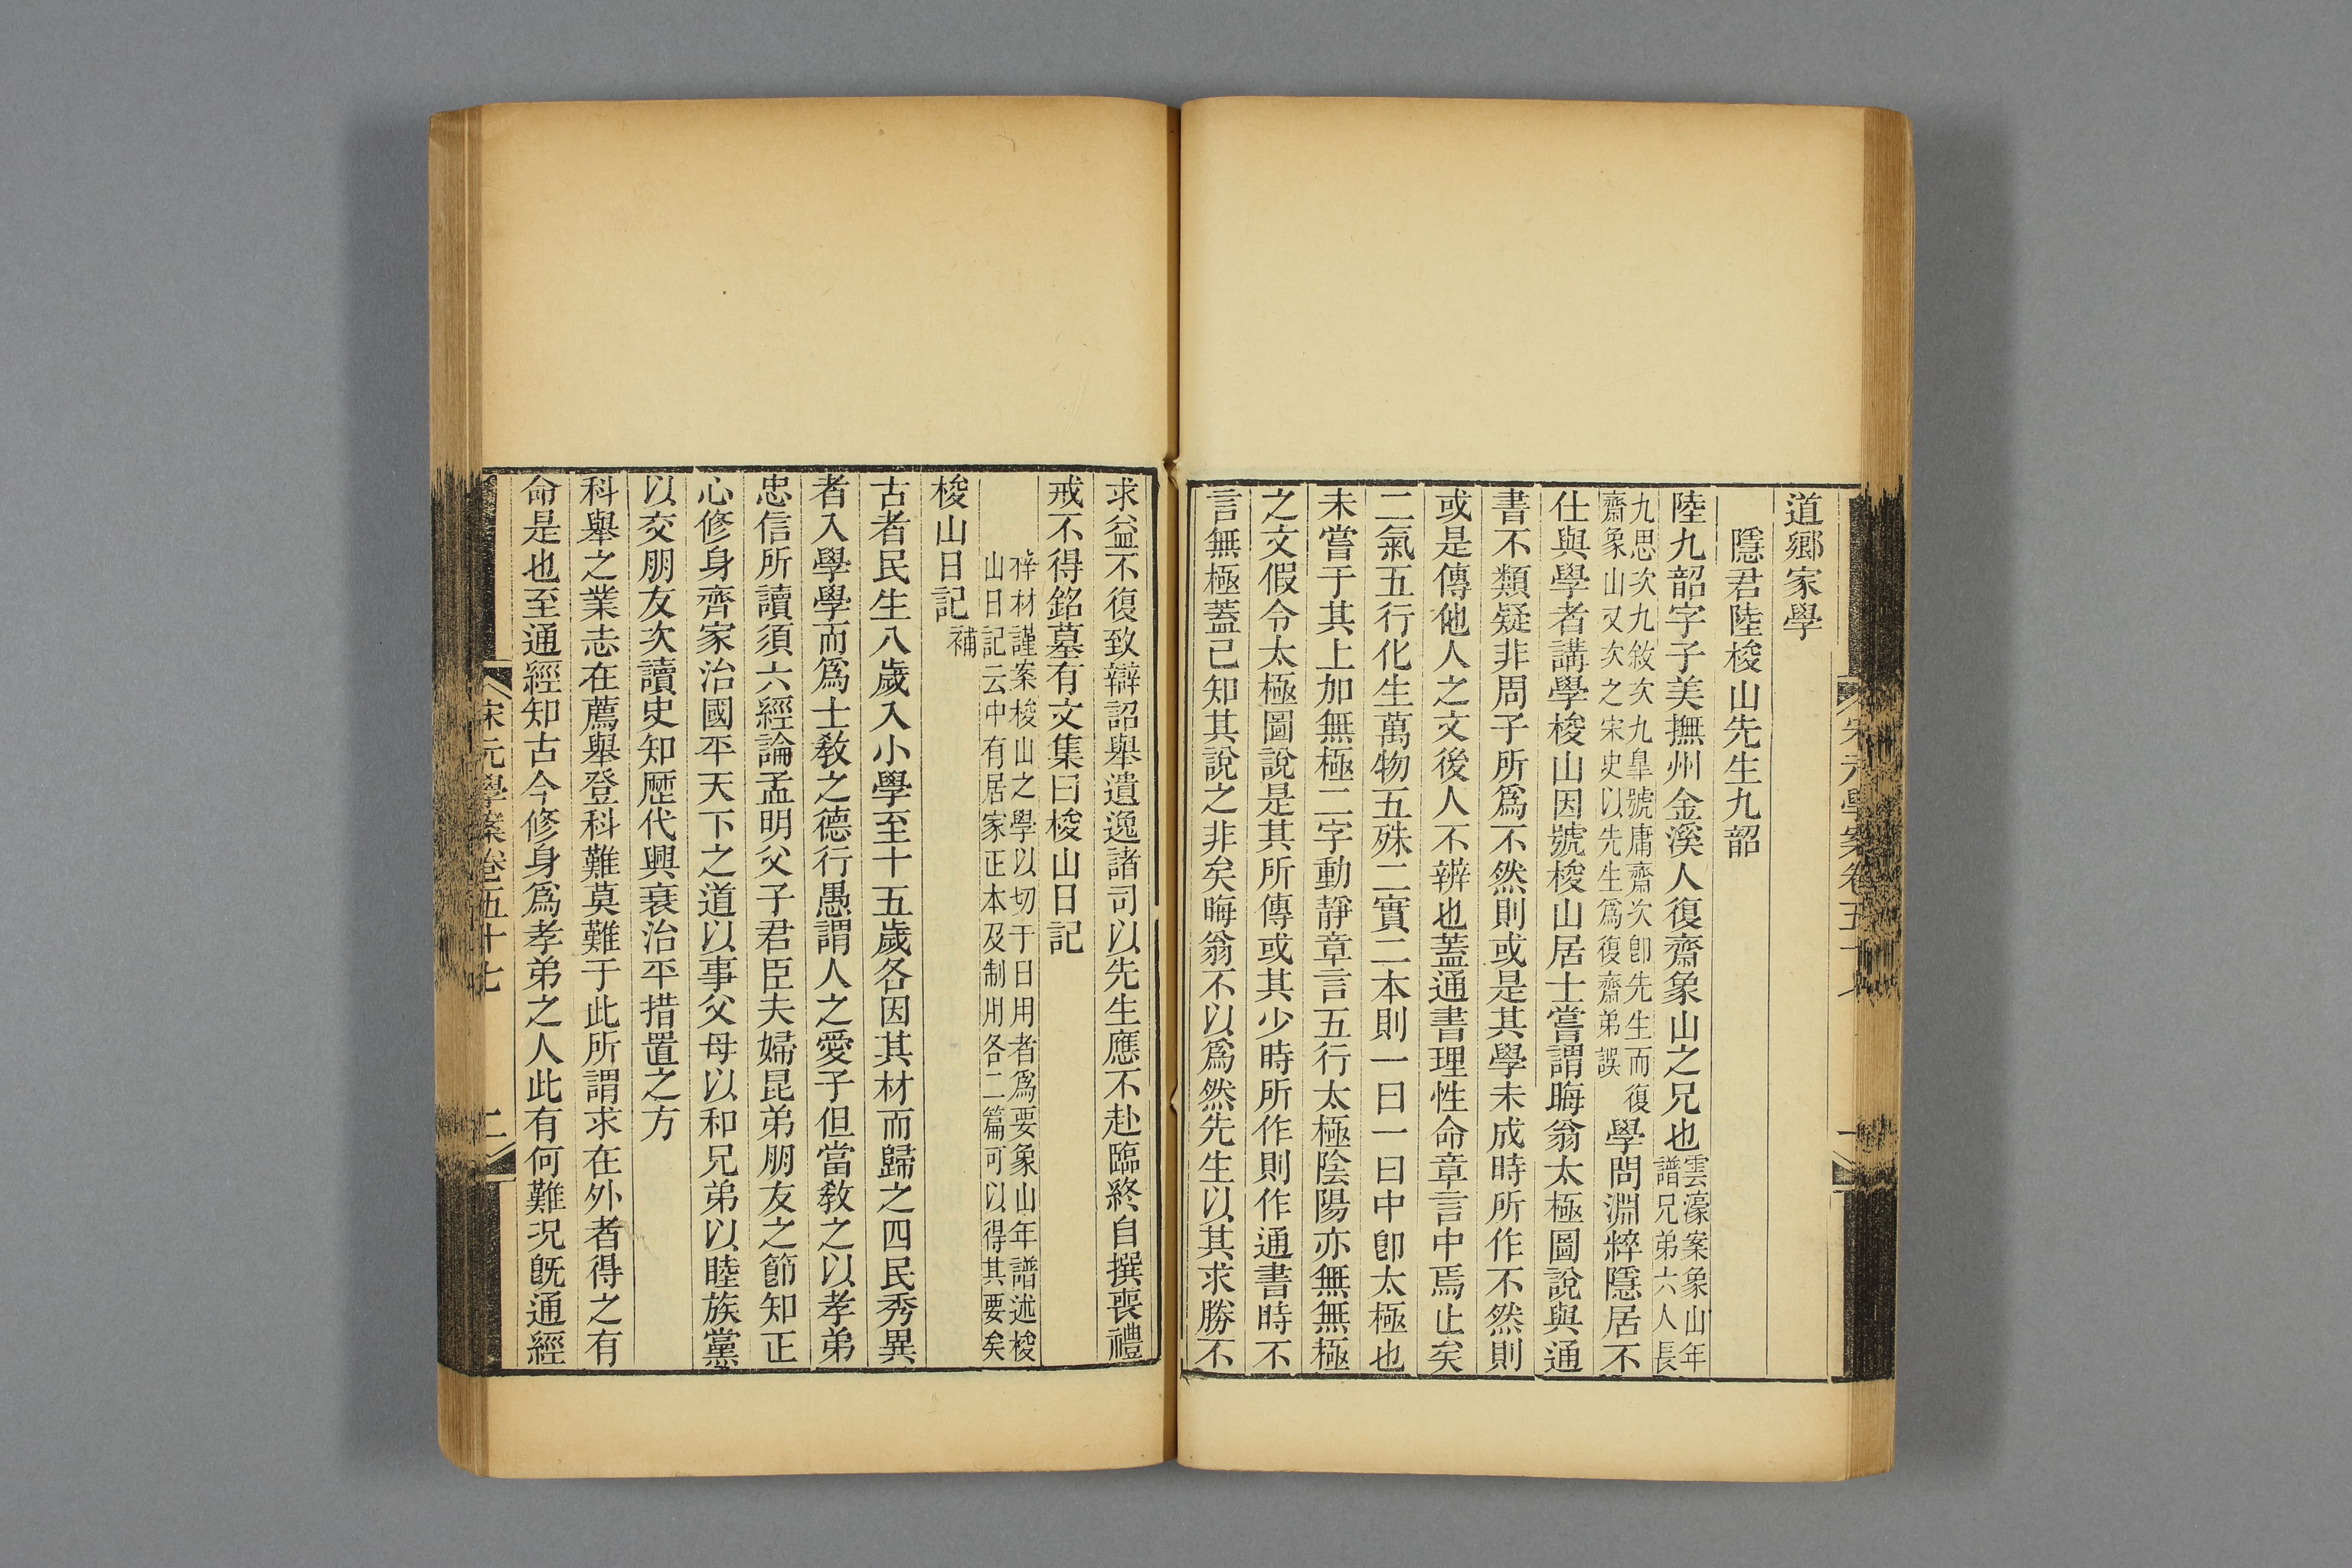 道鄉家學
隱君陸梭山先生九韶
陸九韶字子美撫州金溪人復齋象山之兄也雲濠案象山年譜兄弟六人長
九思次九敘次九臯號庸齋次卽先生而復齋象山又次之宋史以先生爲復齋弟誤學問淵粹隱居不
仕與學者講學梭山因號梭山居士嘗謂晦翁太極圖說與通
書不類疑非周子所爲不然則或是其學未成時所作不然則
或是傳他人之文後人不辨也蓋通書理性命章言中焉止矣
二氣五行化生萬物五殊二實二本則一曰一曰中卽太極也
未嘗于其上加無極二字動靜章言五行太極陰陽亦無無極
之文假令太極圖說是其所傳或其少時所作則作通書時不
言無極蓋已知其說之非矣晦翁不以爲然先生以其求勝不
求益不復致辯詔舉遺逸諸司以先生應不赴臨終自撰喪禮
戒不得銘墓有文集曰梭山日記
梓材謹案梭山之學以切于日用者爲要象山年譜述梭
山日記云中有居家正本及制用各二篇可以得其要矣
梭山日記補
古者民生八歲入小學至十五歲各因其材而歸之四民秀異
者入學學而爲士敎之德行愚謂人之愛子但當敎之以孝弟
忠信所讀須六經論孟明父子君臣夫婦昆弟朋友之節知正
心修身齊家治國平天下之道以事父母以和兄弟以睦族黨
以交朋友次讀史知歷代興衰治平措置之方
科舉之業志在薦舉登科難莫難于此所謂求在外者得之有
命是也至通經知古今修身爲孝弟之人此有何難況旣通經
宋元學案卷五十七
二